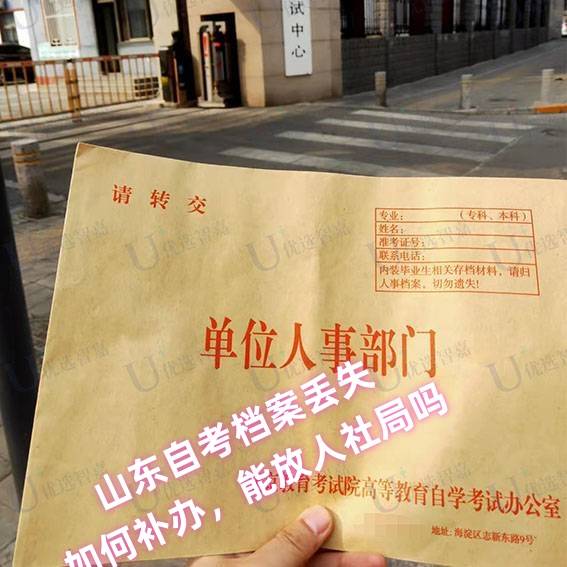 试中心
请转交
专业: （专科、本科）
姓名:
准考证号:
联系电话:
内装毕业生相关存档材料，请归
人事档案，切勿遗失!
单位人事部门
山东自考档案丢失
如何补办，能放人社局吗
京教育考试院高等教育自学考试办公室
地址: 海淀区志新东路9号
U优选智嘉